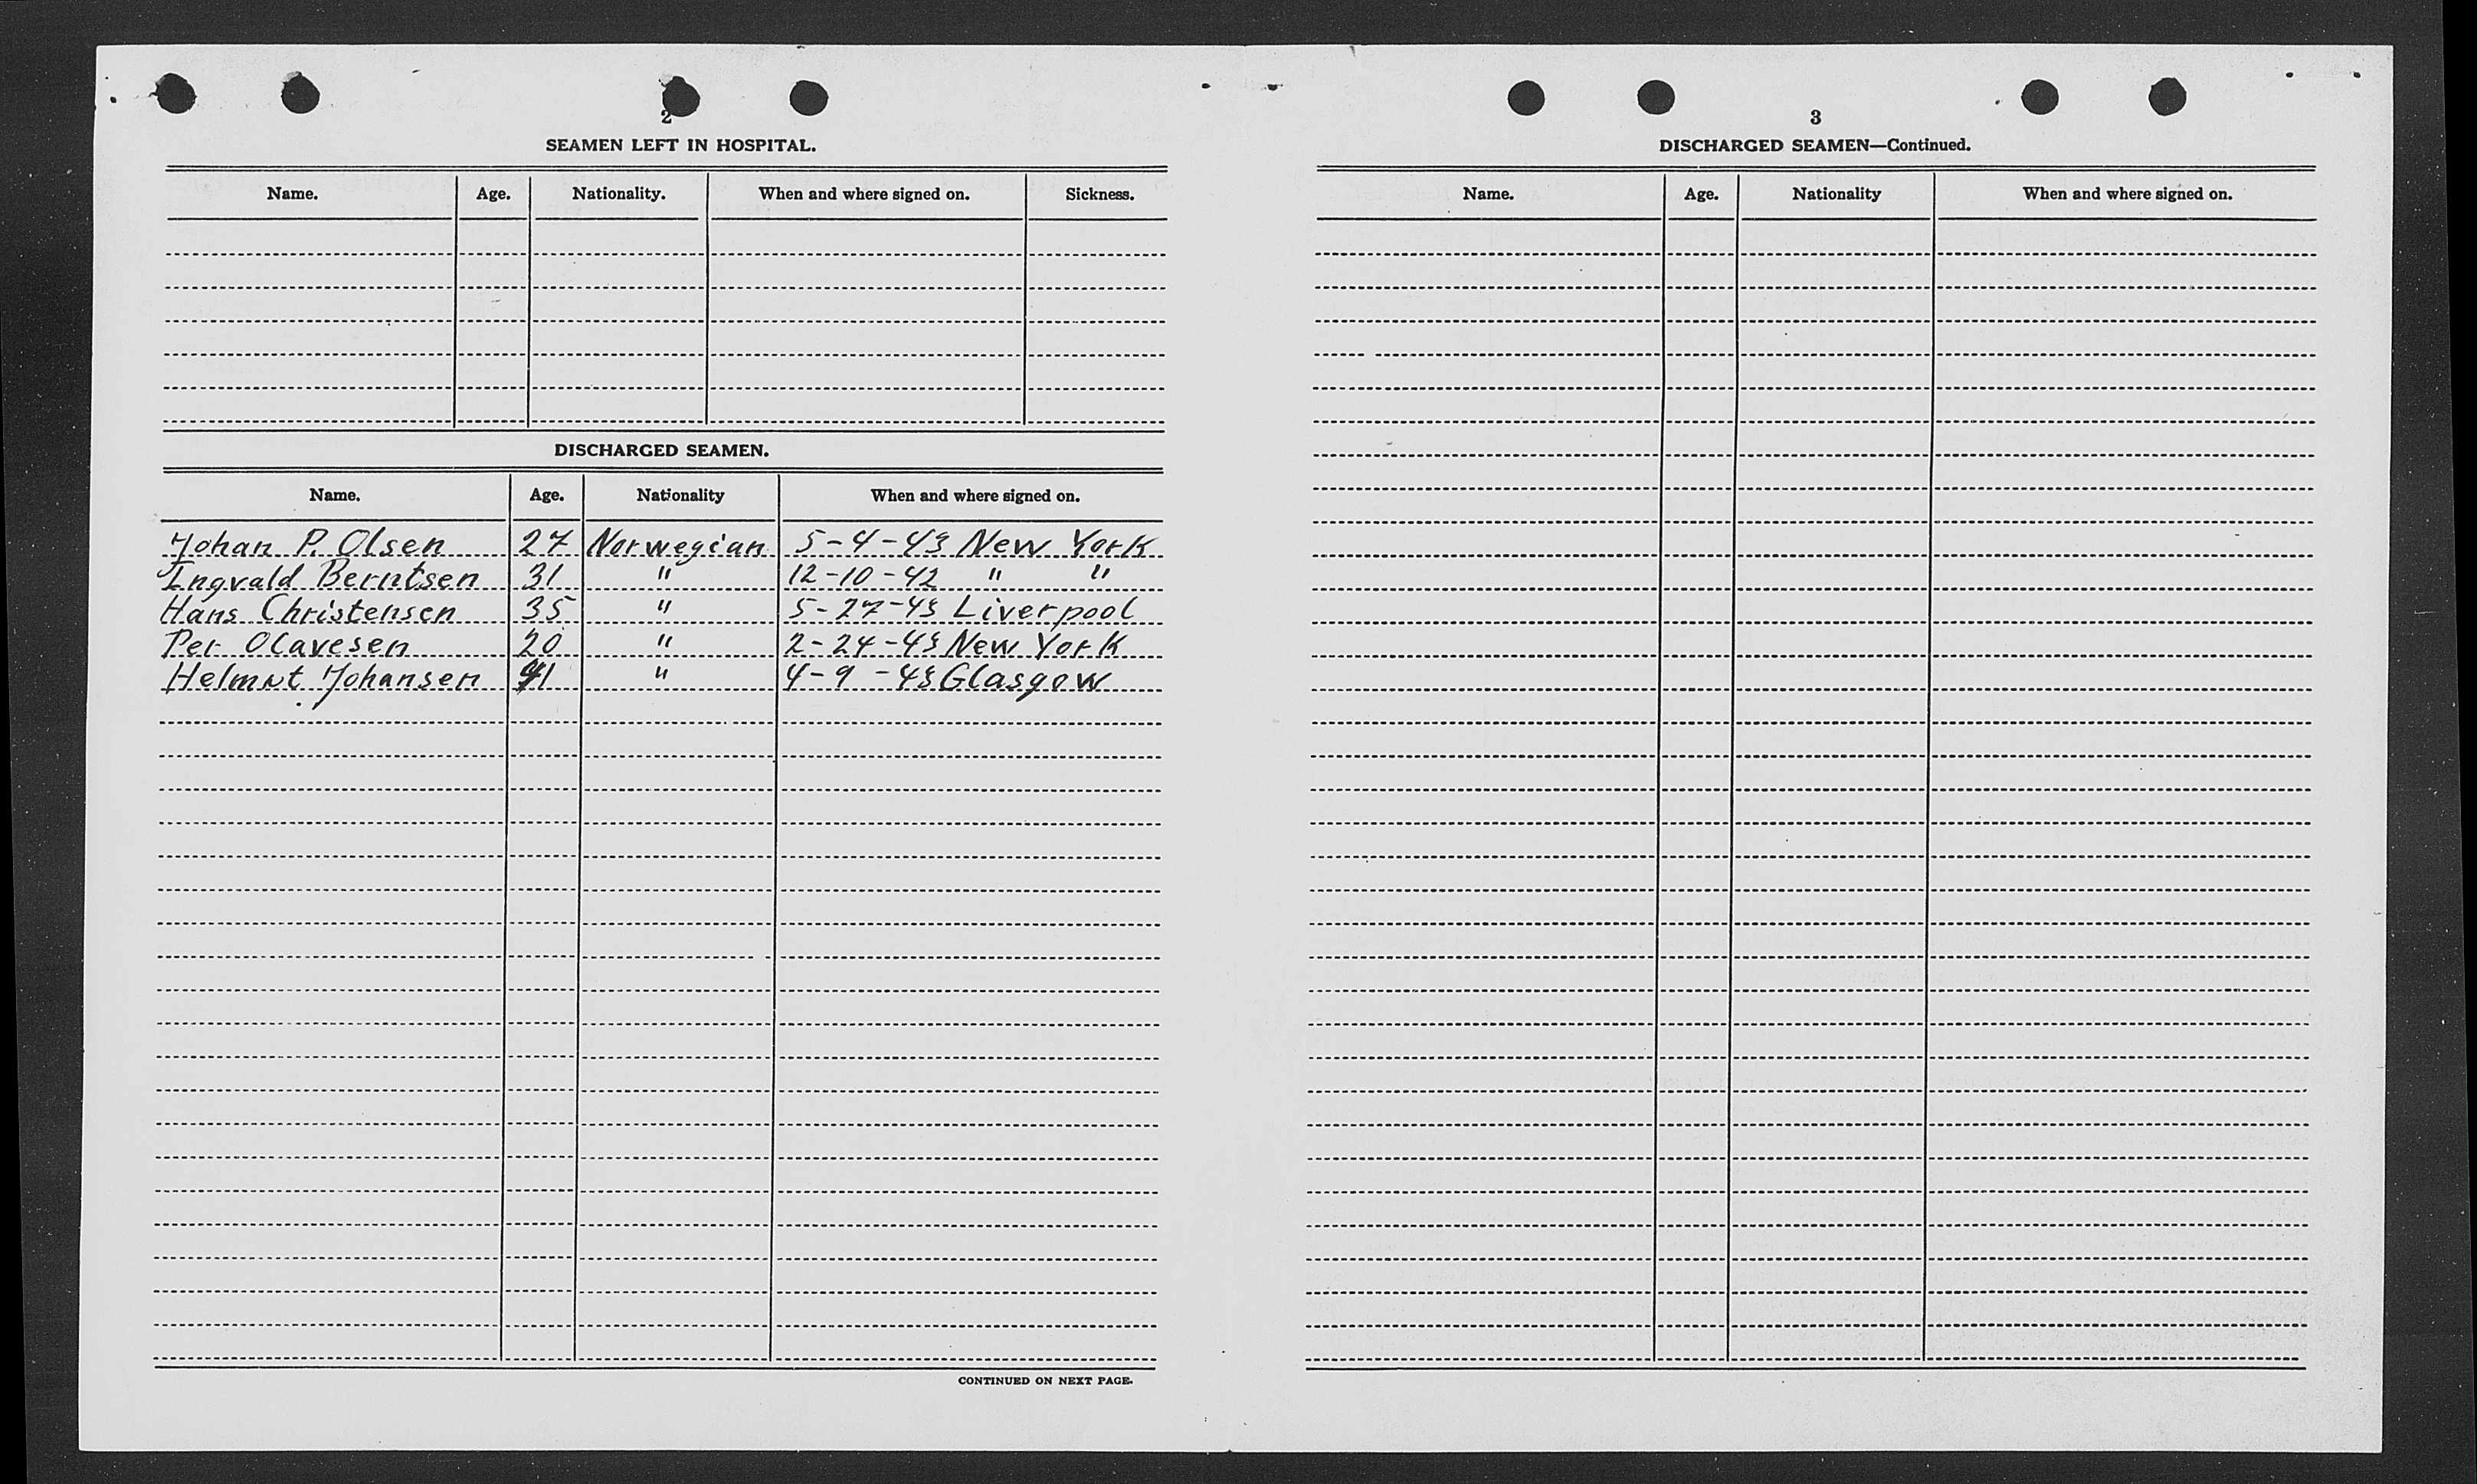 2
SEAMEN LEFT IN HOSPITAL.
Name. Age. Nationality. When and where signed on. Sickness.
DISCHARGED SEAMEN.
Name. Age. Nationality When and where signed on.
Johan P. Olsen 27 Norwegian 5-4-43 New York
Ingvald Berntsen 31 " 12-10-42 " "
Hans Christensen 35 " 5-27-43 Liverpool
Per Olavesen 20 " 2-24-43 New York
Helmut Johansen 41 " 4-9-43 Glasgow
CONTINUED ON NEXT PAGE.
3
DISCHARGED SEAMEN—Continued.
Name. Age. Nationality When and where signed on.